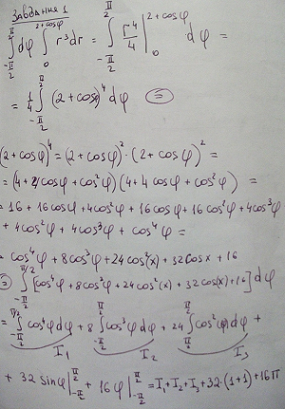 Завдання 1
∫_{-π/2}^{π/2} dφ ∫_0^{2+cosφ} r³dr = ∫_{-π/2}^{π/2} r⁴/4 |_0^{2+cosφ} dφ =
= 1/4 ∫_{-π/2}^{π/2} (2+cosφ)⁴ dφ ⊜
(2+cosφ)⁴ = (2+cosφ)² · (2+cosφ)² =
= (4+4cosφ+cos²φ)(4+4cosφ+cos²φ) =
= 16+16cosφ+4cos²φ+16cosφ+16cos²φ+4cos³φ
+ 4cos²φ+4cos³φ+cos⁴φ =
= cos⁴φ+8cos³φ+24cos²(x)+32cosx+16
⊜ ∫_{-π/2}^{π/2} [cos⁴φ+8cos³φ+24cos²(x)+32cos(x)+16] dφ
= ∫_{-π/2}^{π/2} cos⁴φdφ + 8 ∫_{-π/2}^{π/2} cos³φdφ + 24 ∫_{-π/2}^{π/2} cos²φdφ +
I₁ I₂ I₃
+ 32 sinφ |_{-π/2}^{π/2} + 16φ |_{-π/2}^{π/2} = I₁+I₂+I₃+32·(1+1)+16π